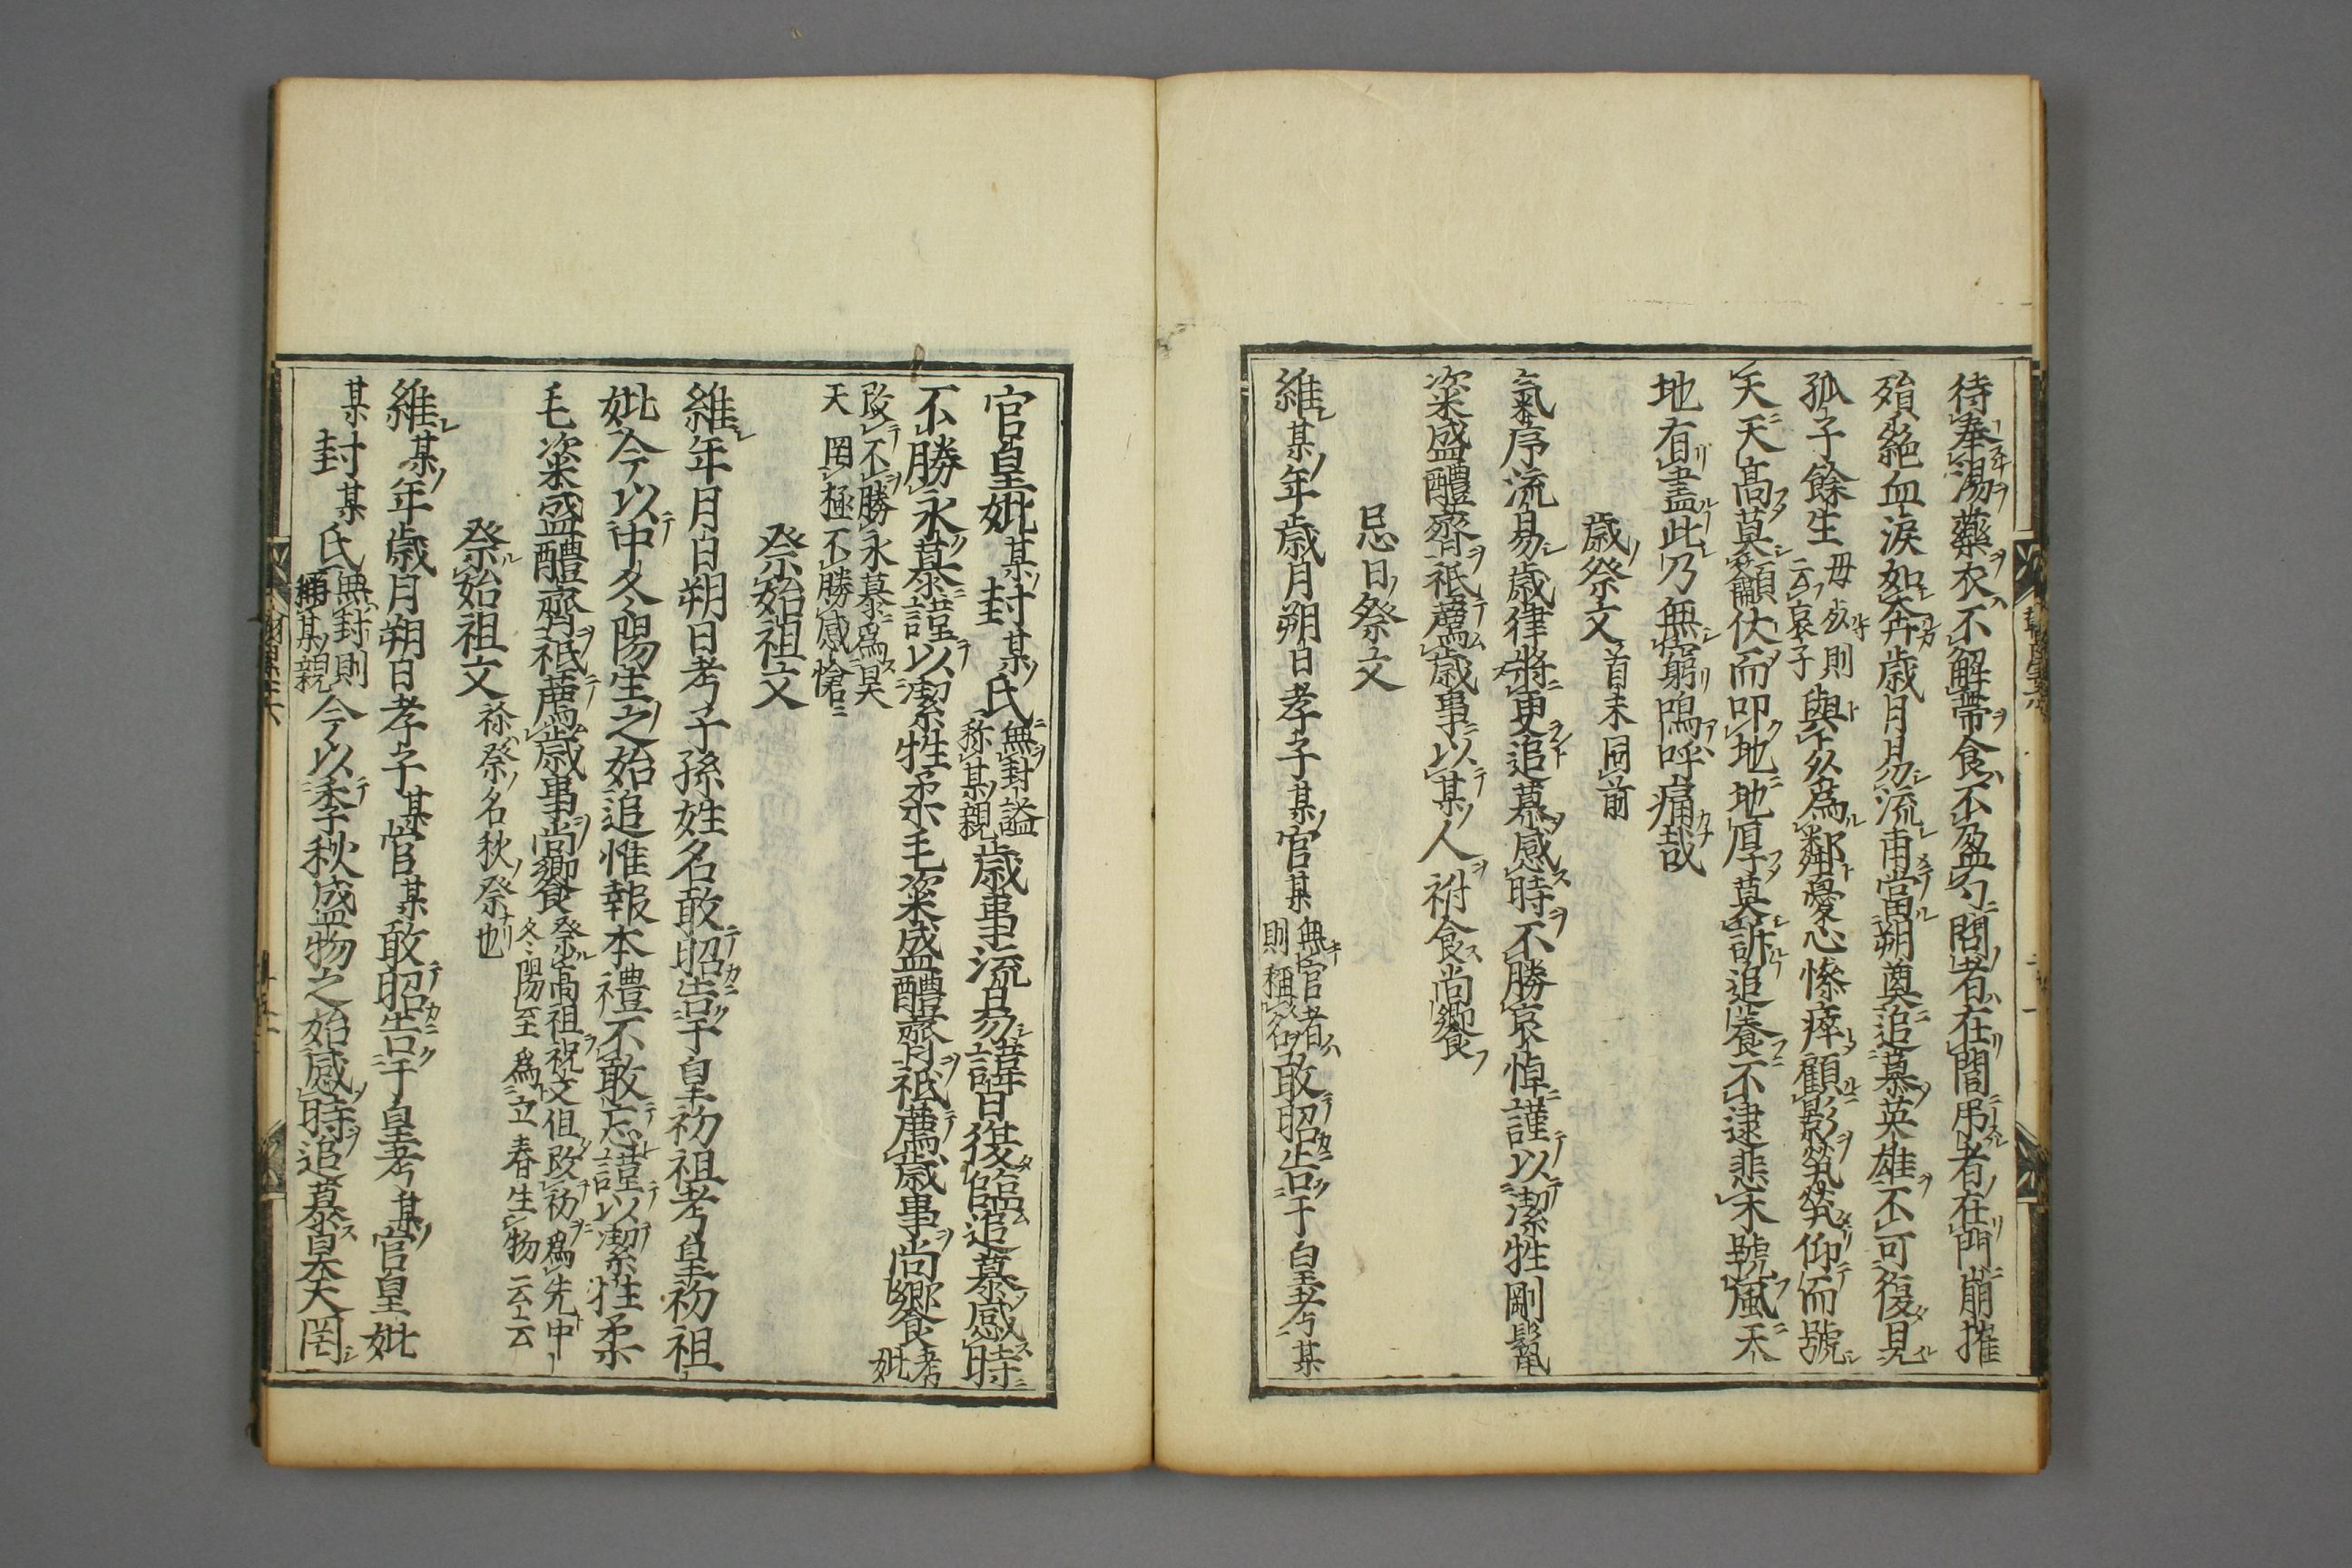 待奉湯藥衣不解帶食不盈勺問者在閭吊者在門崩摧
殞絕血淚如奔歲月易流甫當朔奠追慕英雄不可復見
孤子餘生母歿則云哀子與久爲鄰憂心慘瘁顧影煢煢仰而號
天天高莫籲伏而叩地地厚莫訴追養不逮悲未號風天
地有盡此乃無窮嗚呼痛哉
歲祭文首末同前
氣序流易歲律將更追慕感時不勝哀悼謹以潔牲剛鬣
粢盛醴齊祗薦歲事以某人祔食尚饗
忌日祭文
維某年歲月朔日孝子某官某無官者則稱名敢昭告于皇考某
官皇妣某封某氏無封謚稱某親歲事流易諱日復臨追慕感時
不勝永慕謹以潔牲柔毛粢盛醴齊祗薦歲事尚饗考妣
改不勝永慕爲昊天罔極不勝感愴
祭始祖文
維年月日朔日孝子孫姓名敢昭告于皇初祖考皇初祖
妣今以中冬陽生之始追惟報本禮不敢忘謹以潔牲柔
毛粢盛醴齊祗薦歲事尚饗祭高祖祝文但改初爲先中冬陽至爲立春生物云云
祭始祖文祢祭名秋祭也
維某年歲月朔日孝子某官某敢昭告于皇考某官皇妣
某封某氏無封則稱某親今以季秋成物之始感時追慕昊天罔